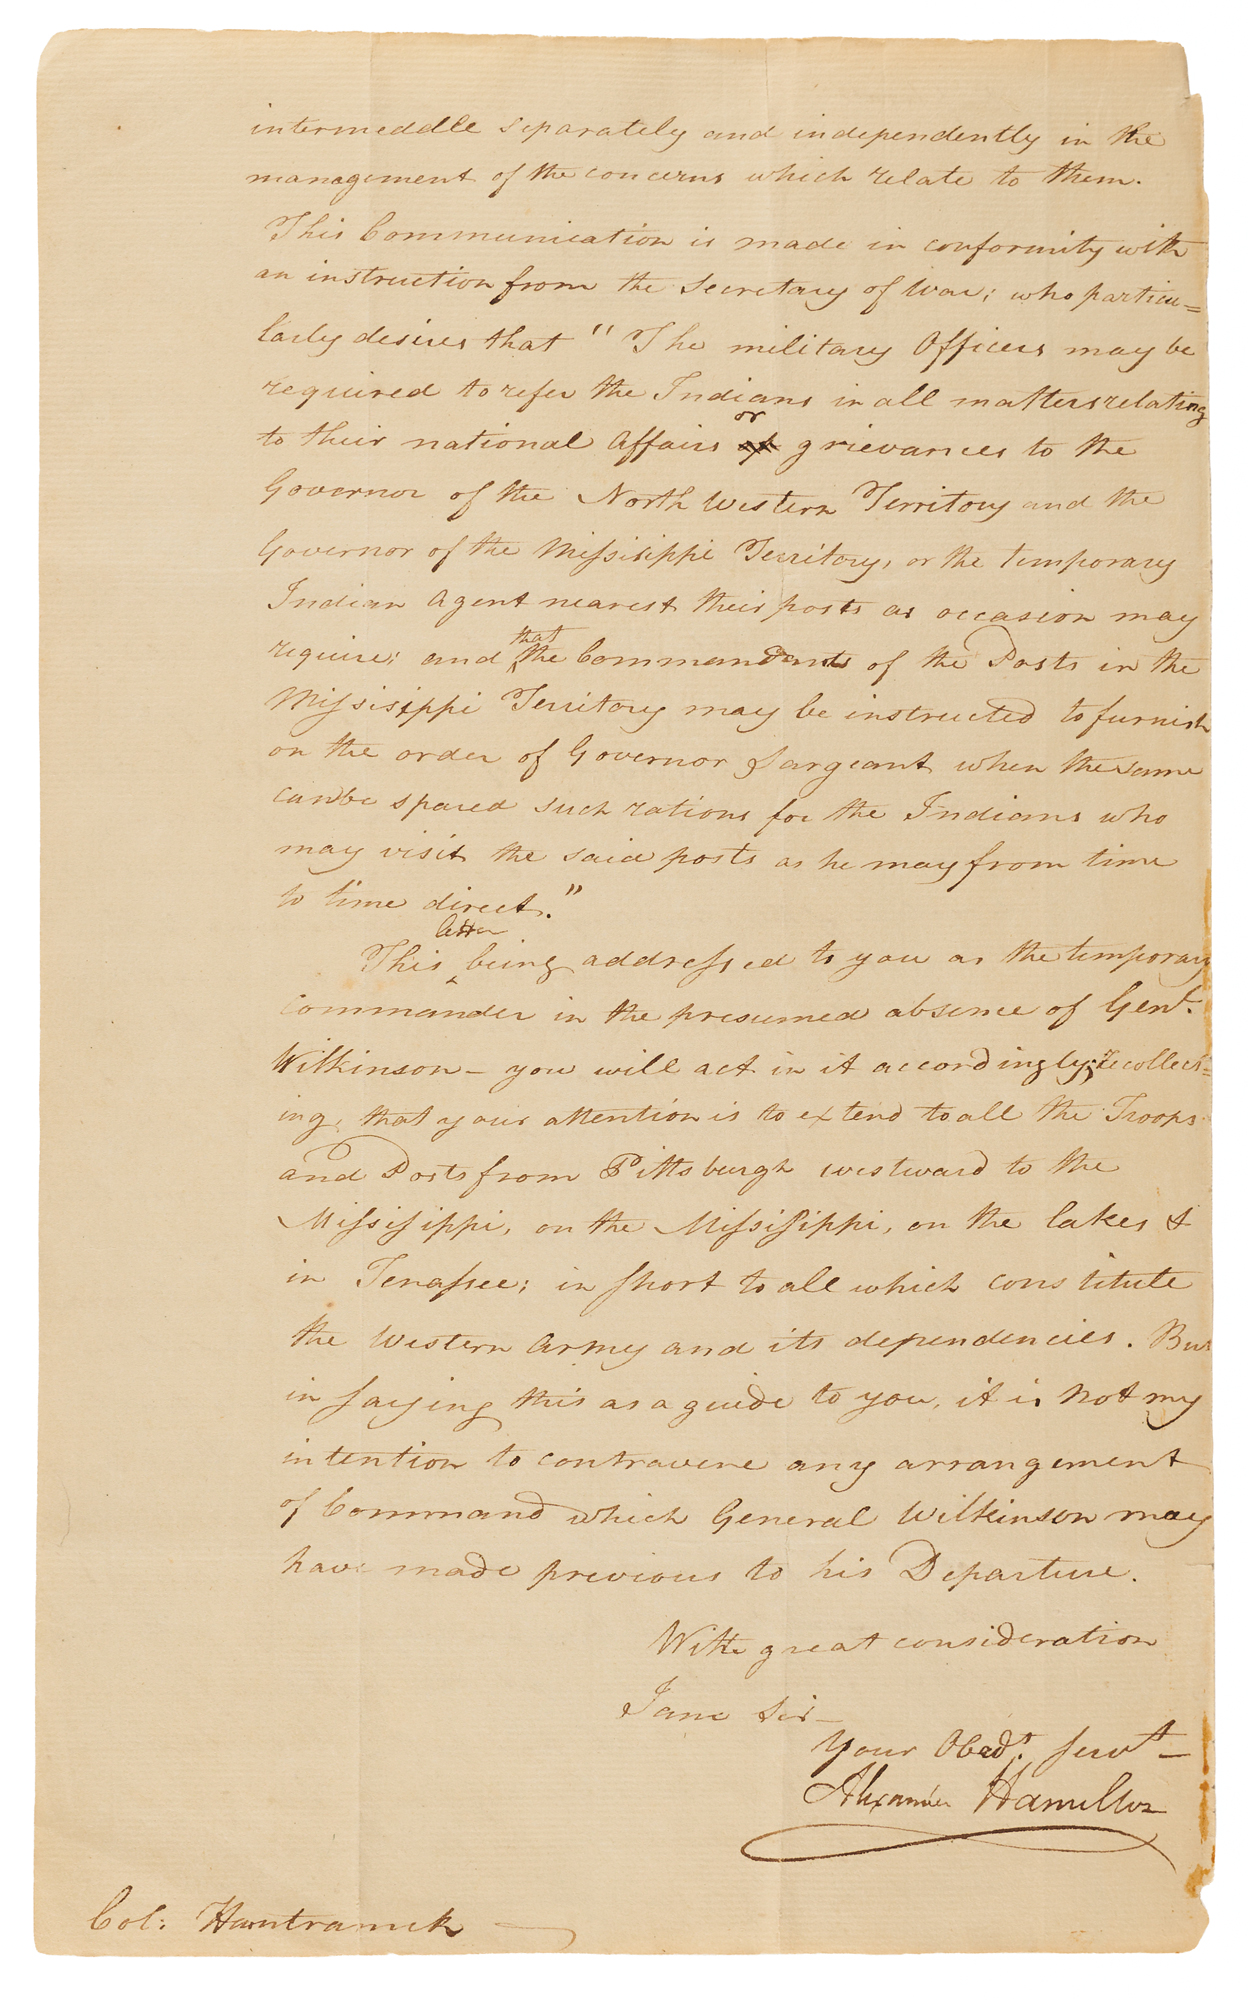 intermeddle separately and independently in the
management of the concerns which relate to them.
This Communication is made in conformity with
an instruction from the Secretary of War; who particu=
larly desires that "The military Officers may be
required to refer the Indians in all matters relating
or
to their national Affairs of grievances to the
Governor of the North Western Territory and the
Governor of the Missisippi Territory, or the temporary
Indian Agent nearest their posts as occasion may
that
require; and ‸ the Commandants of the Posts in the
Missisippi Territory may be instructed to furnish
on the order of Governor Sargeant when the same
can be spared such rations for the Indians who
may visit the said posts as he may from time
to time direct."
letter
This ‸ being addressed to you as the temporary
commander in the presumed absence of Genl.
Wilkinson – you will act in it accordingly; recollect=
ing, that your attention is to extend to all the Troops
and Posts from Pittsburgh westward to the
Missisippi, on the Missisippi, on the lakes &
in Tenassee; in short to all which constitute
the Western Army and its dependencies. But
in saying this as a guide to you, it is not my
intention to contravene any arrangement
of Command which General Wilkinson may
have made previous to his Departure.
With great consideration
I am Sir –
Your Obedt. Servt –
Alexander Hamilton
Col: Hamtramck